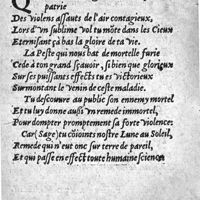 Q
patrie
Des violens assauts de l'air contagieux,
Lors d'vn sublime vol tu mõte dans les Cieux
Eternisant çà bas la gloire de ta vie.
La Peste qui nous bat de mortelle furie
Cede à ton grand sçauoir, si bien que glorieux
Sur ses puissants effects tu es victorieux
Surmontant le venin de ceste maladie.
Tu descouure au public son ennemy mortel
Et tu luy donne aussi vn remede immortel,
Pour dompter promptement sa forte violence:
Car (Sage) tu cõioints nostre Lune au Soleil,
Remede qui n'eut onc sur terre de pareil,
Et qui passe en effect toute humaine science